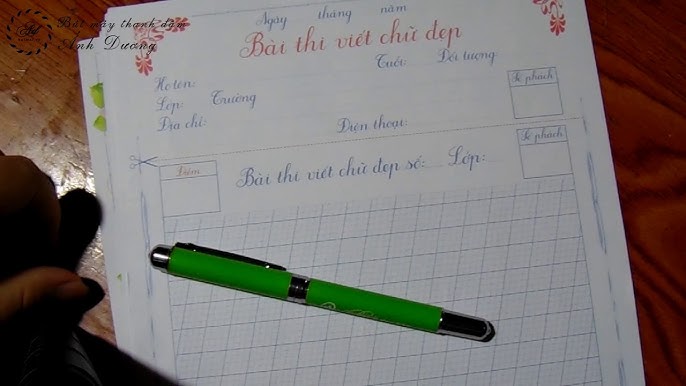 Bút máy thanh đậm
Ánh Dương
Ngày tháng năm
Bài thi viết chữ đẹp
Tuổi: Đối tượng:
Họ tên:
Số phách
Lớp: Trường
Địa chỉ: Điện thoại:
Số phách
Điểm
Bài thi viết chữ đẹp số: Lớp: